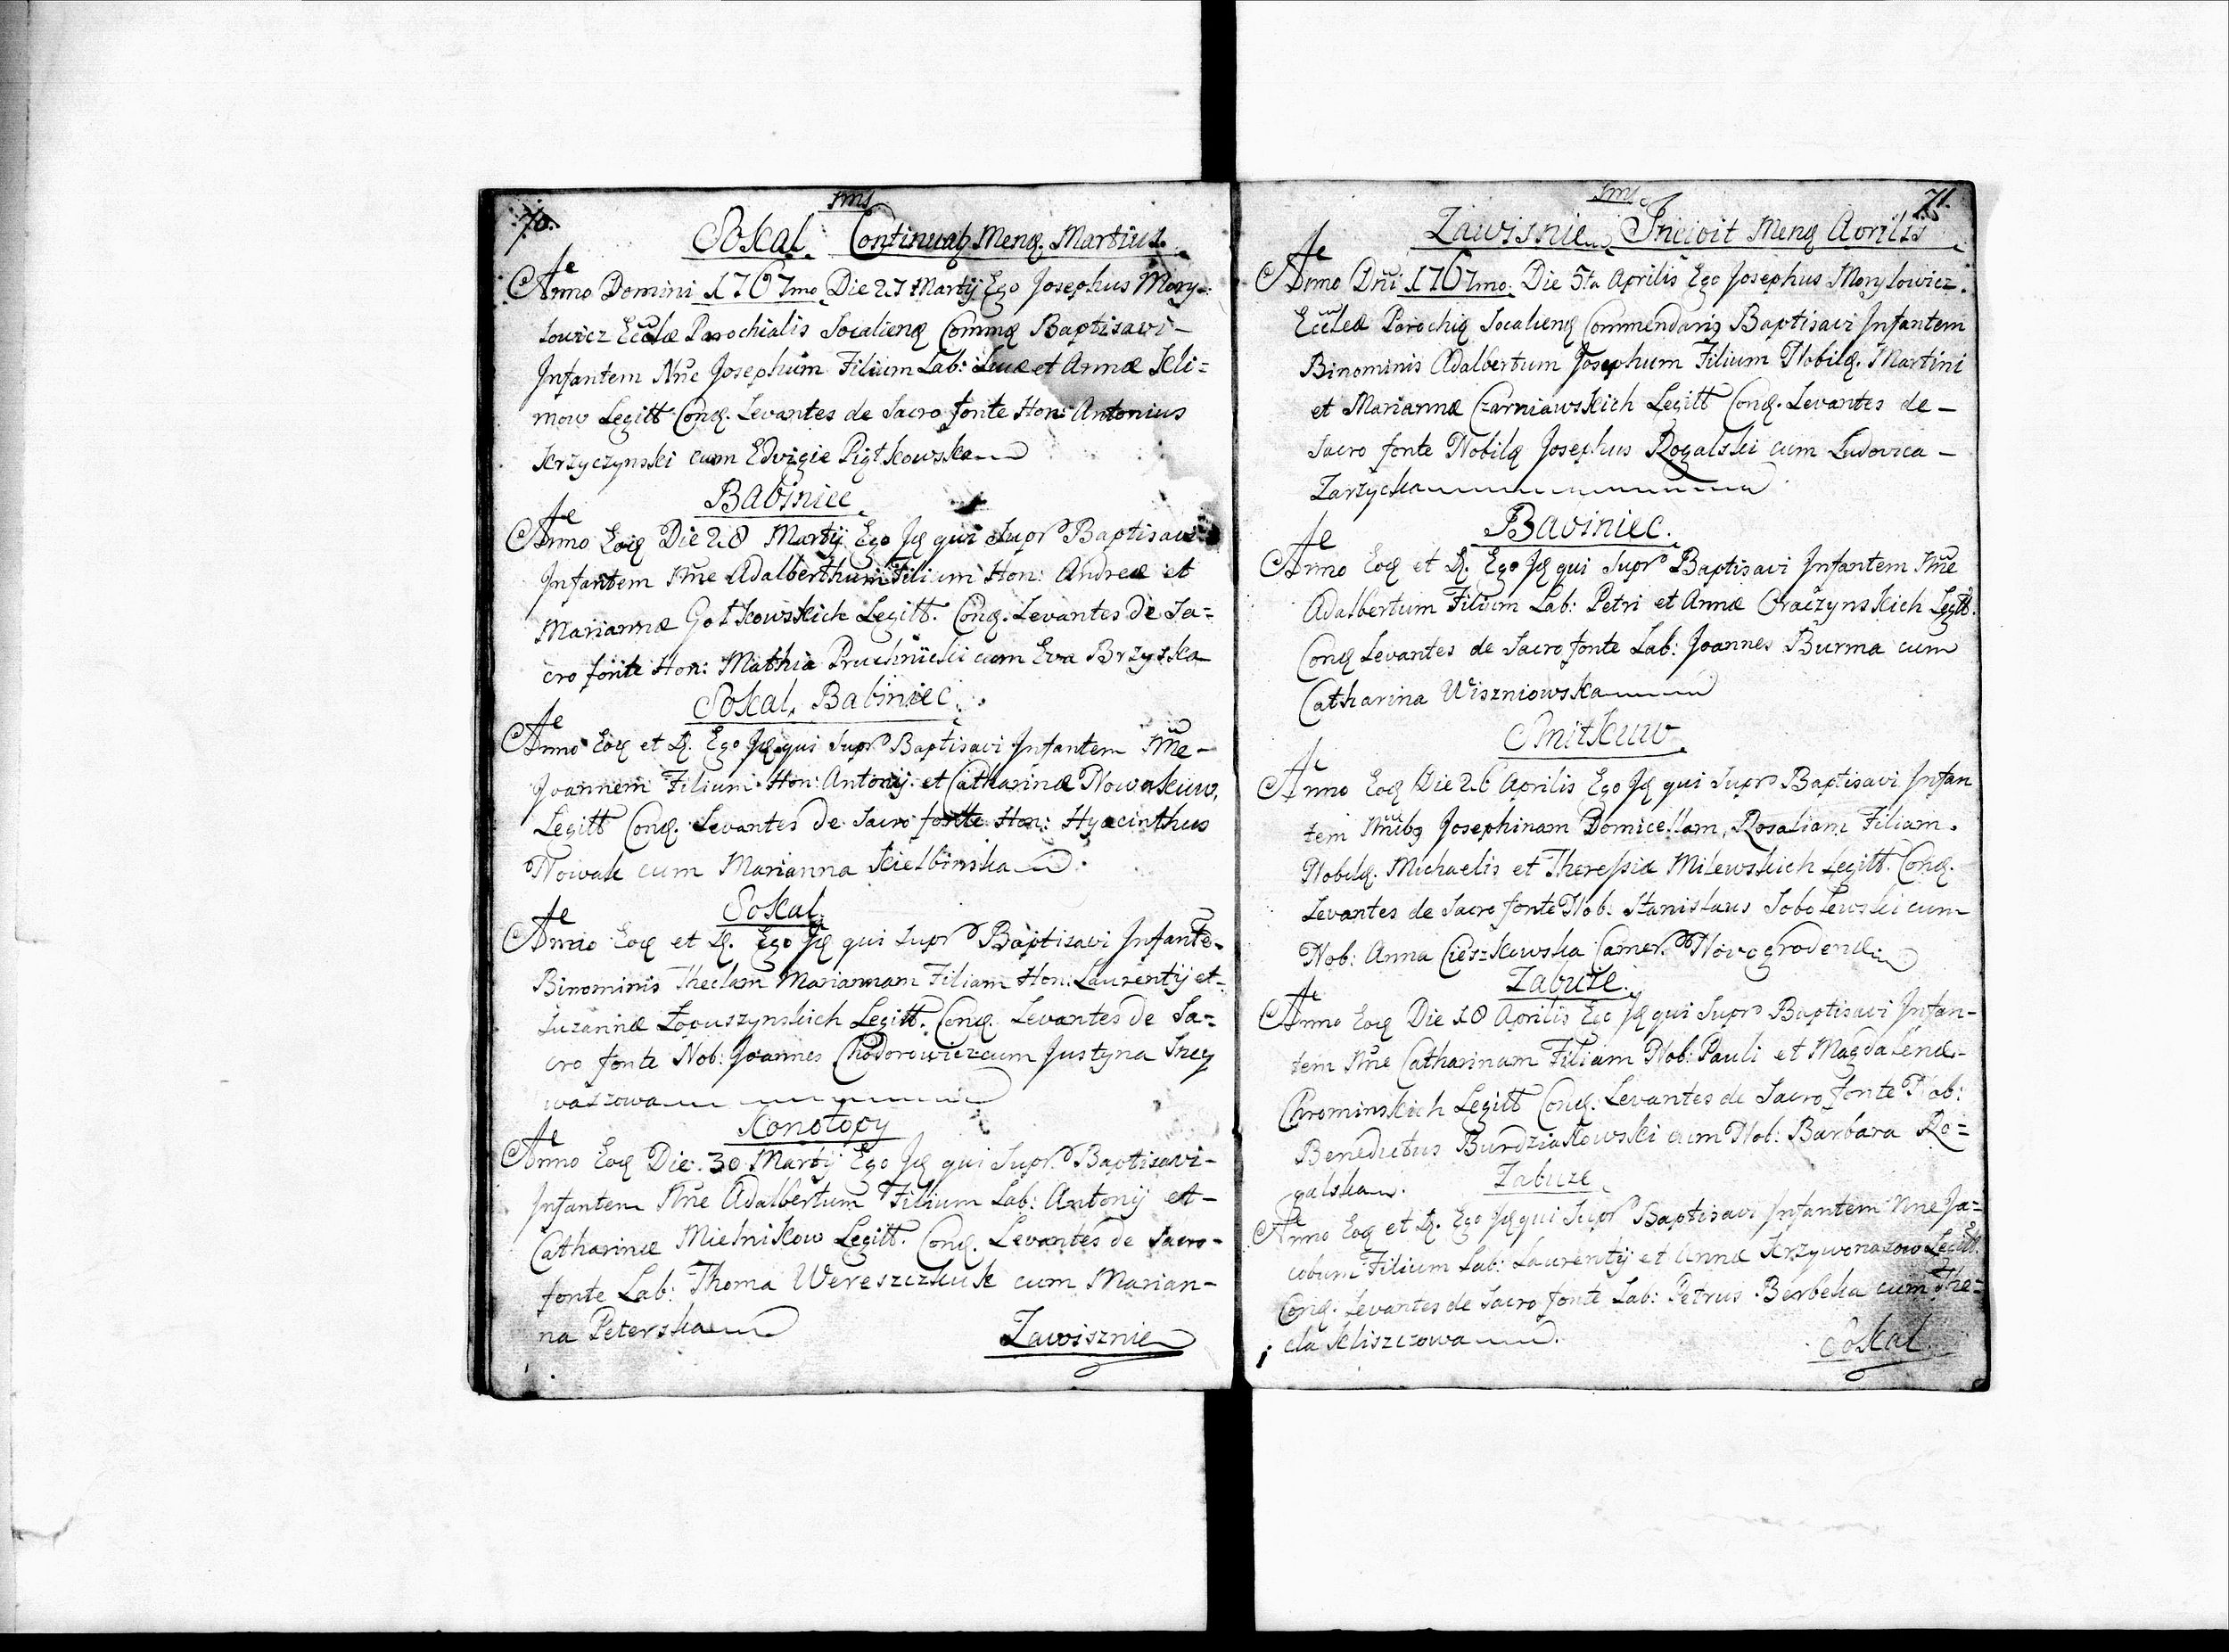 70.
Sokal. Continuat Mensq. Martius.
Anno Domini 1767mo Die 27 Martij Ego Josephus Mory-
lowicz Ecclæ Parochialis Socalienq Commq Baptisavi-
Infantem Nne Josephum Filium Lab: Lucæ et Annæ Kli=
mow Legitt Conq. Levantes de Sacro fonte Hon: Antonius
Krzyczynski cum Edvigie Piątkowska
Babiniec
Anno Eoq Die 28 Martij Ego Jq qui Supr Baptisavi
Infantem Nne Adalberthum Filium Hon: Andreæ et
Mariannæ Gotkowskich Legitt. Conq. Levantes de Sa=
cro fonte Hon: Mathia Pruchnicki cum Eva Brzyska
Sokal. Babiniec.
Anno Eoq et D. Ego Jq qui Supr Baptisavi Infantem Nne-
Joannem Filium Hon: Antonij et Catharinæ Nowakuw,
Legitt Conq. Levantes de Sacro fonte Hon: Hyacinthus
Nowak cum Marianna Kielbinska
Sokal.
Anno Eoq et D. Ego Jq qui Supr Baptisavi Infante-
Binominis Theclam Mariannam Filiam Hon: Laurentij et-
Suzannæ Łopuszynskich Legitt. Conq. Levantes de Sa=
cro fonte Nob: Joannes Chodorowicz cum Justyna
waszowa
Konotopy
Anno Eoq Die 30 Martij Ego Jq qui Supr. Baptisavi-
Infantem Nne Adalbertum Filium Lab: Antonij et-
Catharinæ Mielnikow Legitt. Conq. Levantes de Sacro-
fonte Lab: Thoma Wereszczuk cum Marian-
na Peterska
Zawisznie
71.
Zawisnie. Incipit Mensq Aprilis
Anno Dni 1767mo. Die 5ta Aprilis Ego Josephus Morylowicz.
Ecclæ Parochiq Socalienq Commendariq Baptisavi Infantem
Binominis Adalbertum Josephum Filium Nobilq. Martini
et Mariannæ Czarniawskich Legitt Conq. Levantes de-
Sacro fonte Nobilq Josephus Rogalski cum Ludovica-
Zarzycka
Baviniec.
Anno Eoq et D. Ego Jq qui Supr Baptisavi Infantem Nne
Adalbertum Filium Lab: Petri et Annæ Oraczynskich Legitt.
Conq Levantes de Sacro fonte Lab: Joannes Burma cum
Catharina Wiszniowska
Snitkuw
Anno Eoq Die 26 Aprilis Ego Jq qui Supr Baptisavi Infan
tem Nnibq Josephinam Domicellam, Rosaliam Filiam.
Nobilq. Michaelis et Theressiæ Milewskich Legitt. Conq.
Levantes de Sacro fonte Nob: Stanislaus Sobolewski cum
Nob: Anna Cieszkowska Camer. Novogrodenq
Zabuże.
Anno Eoq Die 18 Aprilis Ego Jq qui Supr Baptisavi Infan-
tem Nne Catharinam Filiam Nob: Pauli et Magdalenæ-
Chrominskich Legitt Conq. Levantes de Sacro fonte Nob:
Benedictus Burdziakowski cum Nob: Barbara Ro=
galska.
Zabuże
Anno Eoq et D. Ego Jq qui Supr Baptisavi Infantem Nne Ja=
cobum Filium Lab: Laurentij et Annæ Krzywonazow Legitt.
Conq. Levantes de Sacro fonte Lab: Petrus Berbeka cum The=
cla Kliszczowa
Sokal